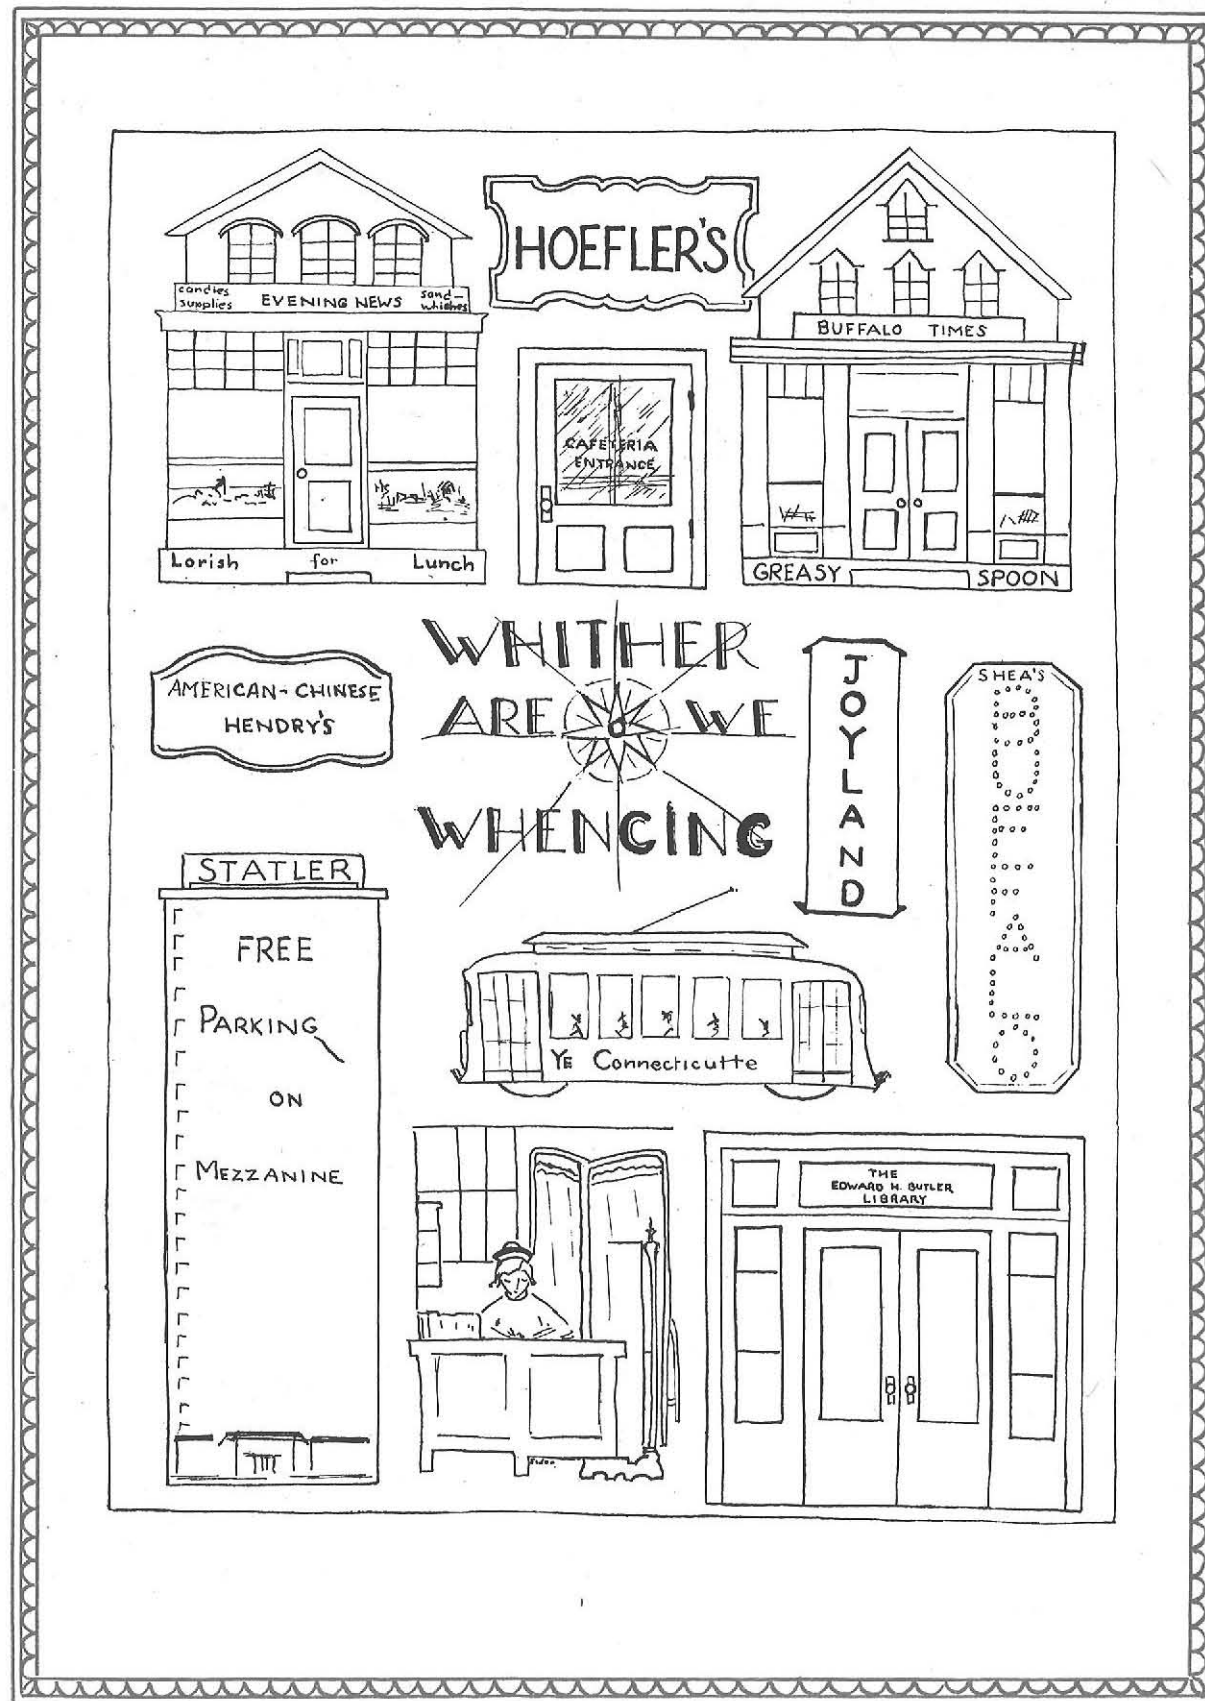 candies
supplies
EVENING NEWS
sand-
whiches
HOEFLER'S
BUFFALO TIMES
CAFETERIA
ENTRANCE
Lorish for Lunch
GREASY SPOON
AMERICAN-CHINESE
HENDRY'S
WHITHER
ARE WE
WHENCING
JOYLAND
SHEA'S
BUFFALO
STATLER
FREE
PARKING
ON
MEZZANINE
YE Connecticutte
THE
EDWARD H. BUTLER
LIBRARY